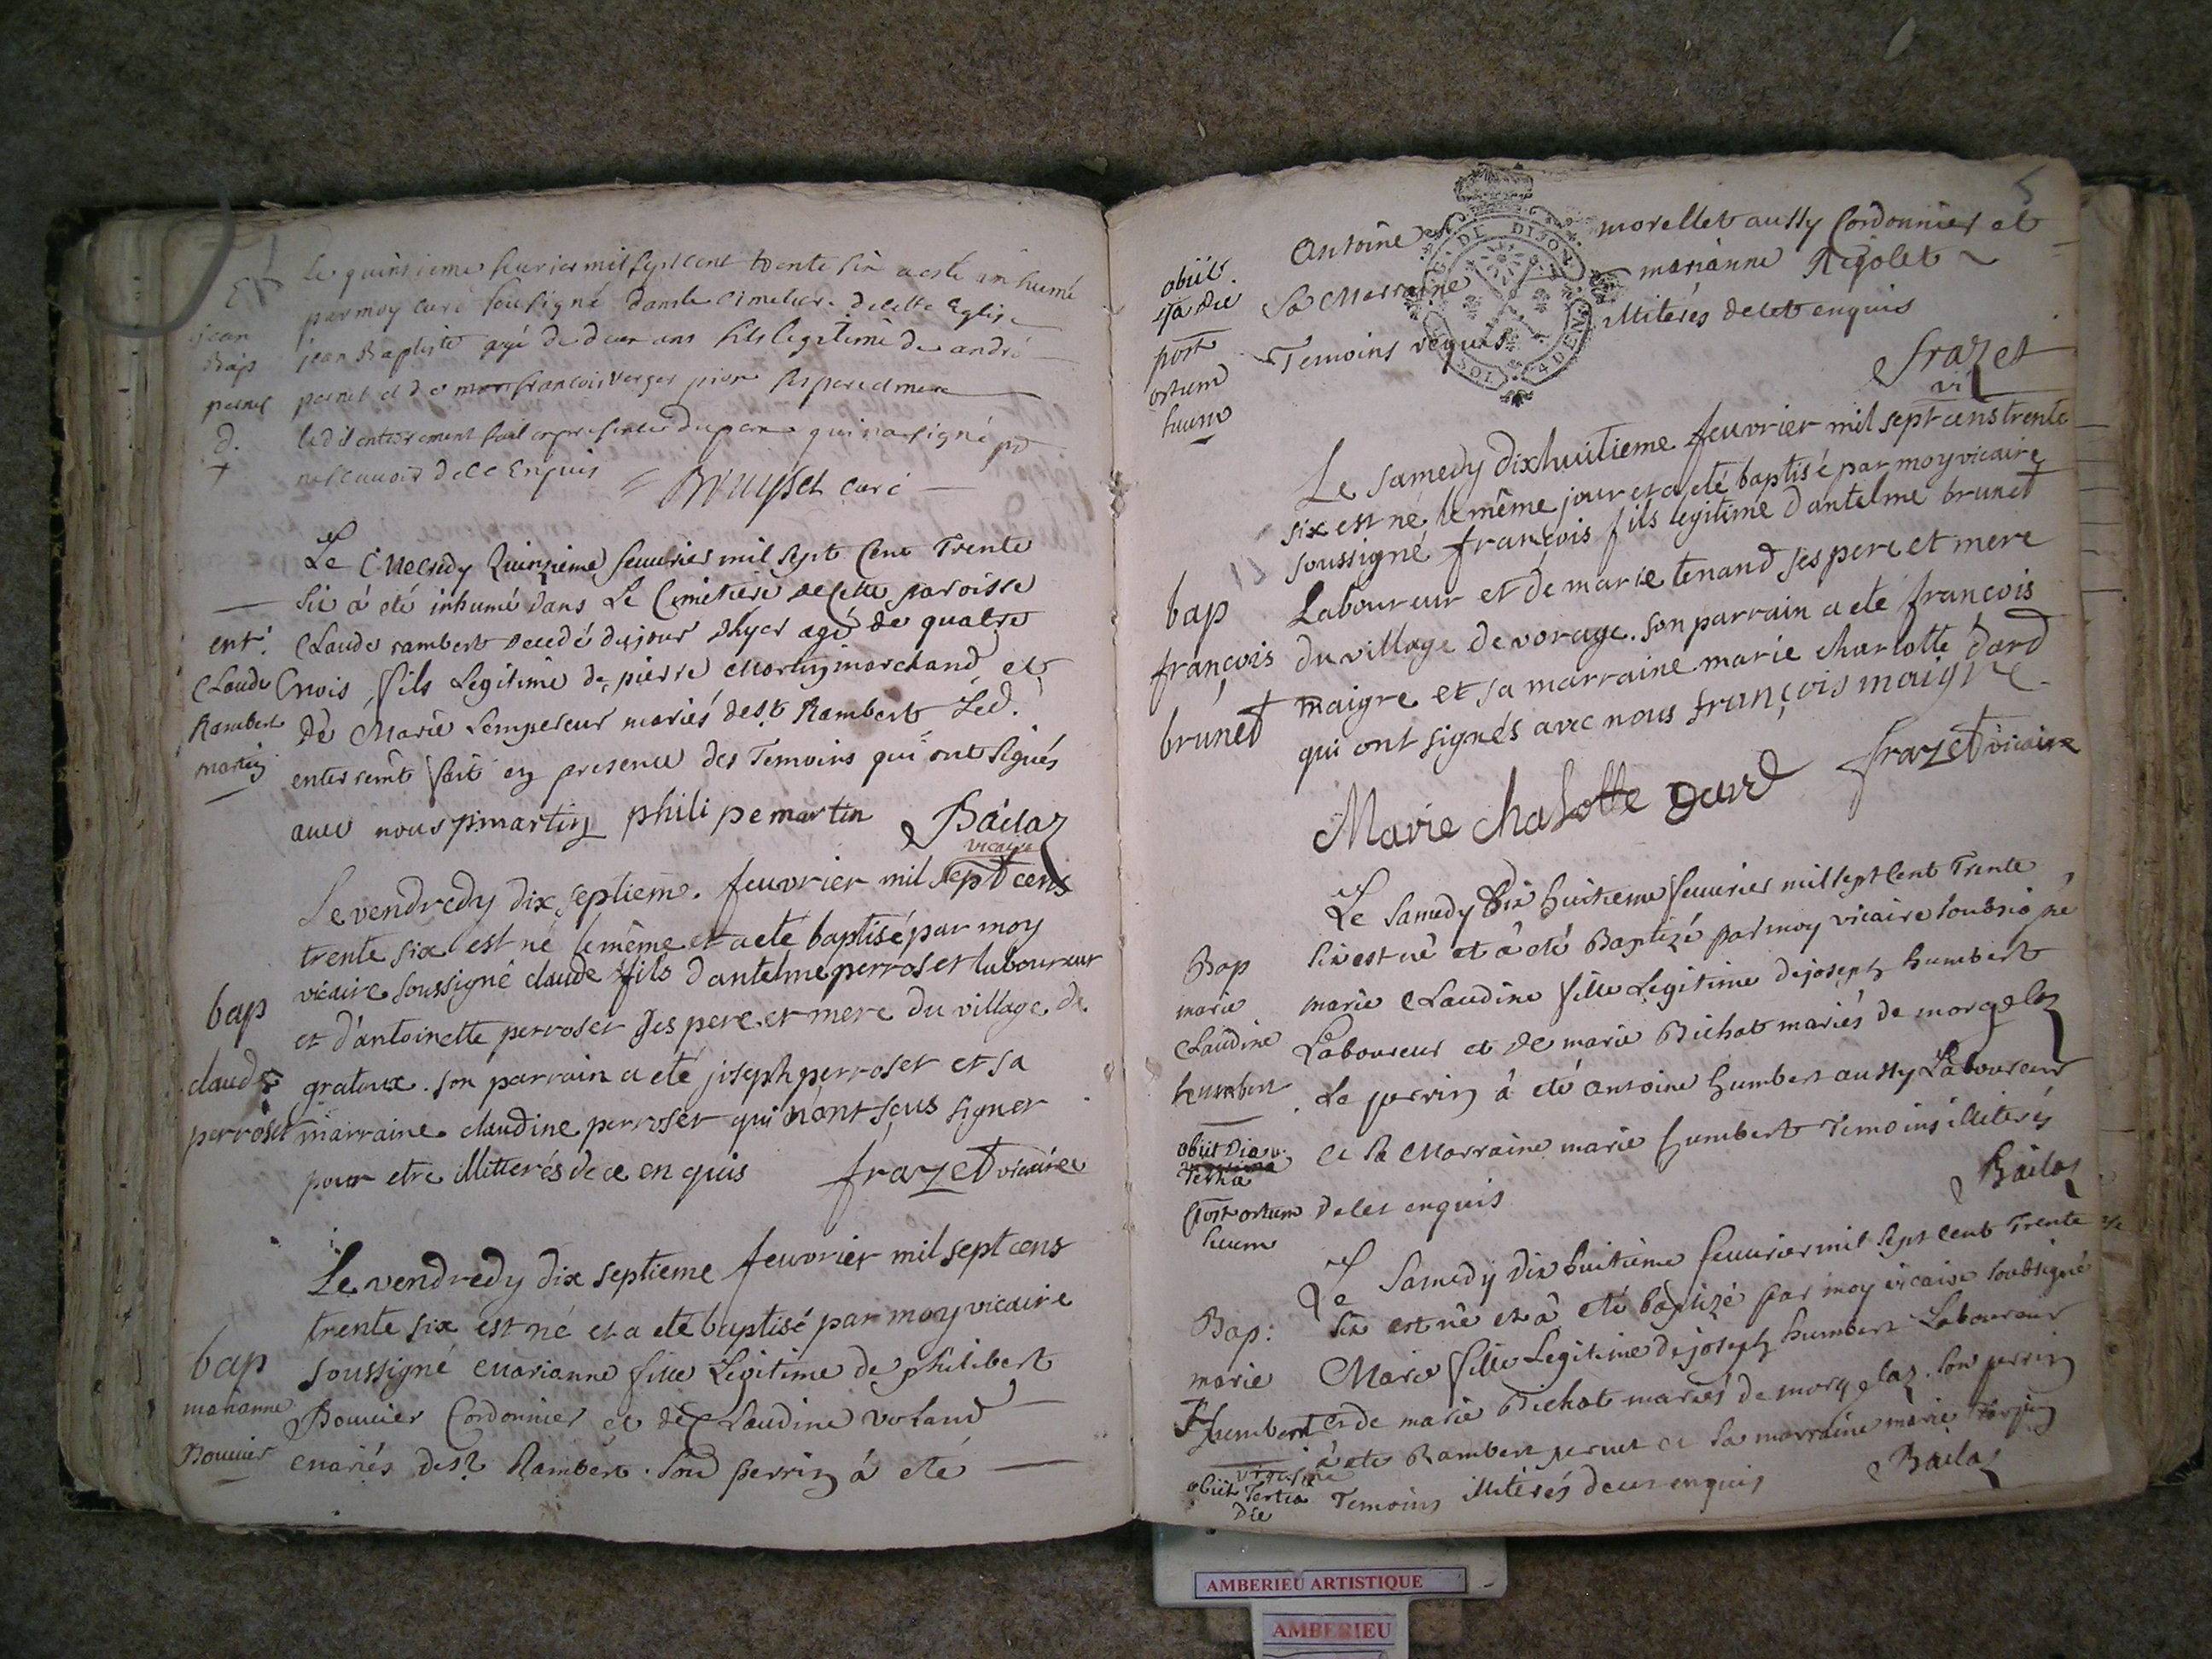 Le quinsieme feurier mil sept cent trente six a esté inhumé
par moy curé sousigné dans le cimetiere de cette Eglise
jean Baptiste agé de deux ans fils legitime de andré
pernet et de francois Verger ses pere et mere
ledit enterrement fait en presence du pere qui n'a signé p^r
ne scauoir de ce Enquis
Bruysset curé
jean
Bap
pernet
d.
Le Mecredy Quinzieme feuurier mil sept Cent Trente
Six á eté inhumé dans Le Cimetiere de Cette paroisse
Claude rambert decedé du jour d'hyer agé de quatre
mois, fils Legitime de pierre Martin marchand et
de Marie Lempereur mariés de S.t Rambert Led.
enterremt fait en presence des Temoins qui ont signés
auec nous pmartin philipe martin Bailaz
vicaire
ent.
Claude
Rambert
martin
Le vendredy dix septiem. feuvrier mil sept cens
trente six est né le même et a eté baptisé par moy
vicaire soussigné claude fils d'antelme perroset laboureur
et d'antoinette perroset ses pere et mere du village de
gratoux. son parrain a eté joseph perroset et sa
marraine claudine perroset qui n'ont sçus signer
pour etre illitterés de ce enquis frazet vicaire
bap
claude
perroset
Le vendredy dix septieme feuvrier mil sept cens
trente six est né et a eté baptisé par moy vicaire
soussigné Marianne fille Legitime de philibert
Bouuier Cordonnier et de Claudine Voland
mariés de S.t Rambert. Son perrin á eté
bap
marianne
Bouuier
5
Antoine morellet aussy Cordonnier et
Sa Marraine marianne Rigolet
Temoins requis illiterés de cet enquis
frazet
vi
obiit
4a die
post
ortum
suum
DE DIJON
4 DEN
Le samedy dixhuitieme feuvrier mil sept cens trente
six est né le même jour et a eté baptisé par moy vicaire
soussigné françois fils legitime d'antelme brunet
Laboureur et de marie tenand ses pere et mere
du village de vorage. son parrain a eté françois
maigre et sa marraine marie charlotte dard
qui ont signés avec nous françois maigre
Marie chalotte dard frazet vicaire
bap
françois
brunet
Le Samedy Dix huitieme feuurier mil sept Cent Trente
Six est né et á eté Baptizé par moy vicaire soubsigné
marie Claudine fille Legitime de joseph humbert
Laboureur et de marie Bichat mariés de morgelaz
Le perrin á eté antoine humbert aussy Laboureur
et Sa Marraine marie humbert Temoins illiterés
de cet enquis
Bailaz
Bap
marie
Claudine
humbert
obiit Dia
Tertia
post ortum
suum
Le Samedy Dix huitieme feuurier mil sept Cent Trente et
Six est né et á eté baptizé par moy vicaire soubsigné
Marie fille Legitime de joseph humbert Laboureur
et de marie Bichat mariés de morgelaz. Son perrin
à eté Rambert pernet et Sa marraine marie
Temoins illiterés de cet enquis
Bailaz
Bap:
marie
Humbert
obiit vigesima
Tertia
Die
AMBERIEU ARTISTIQUE
AMBERIEU